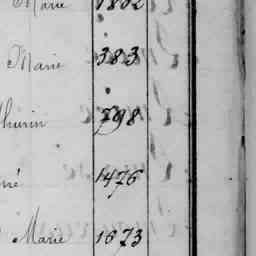 Marie 1802
Marie 383
thurin 798
né 1476
Marie 1673